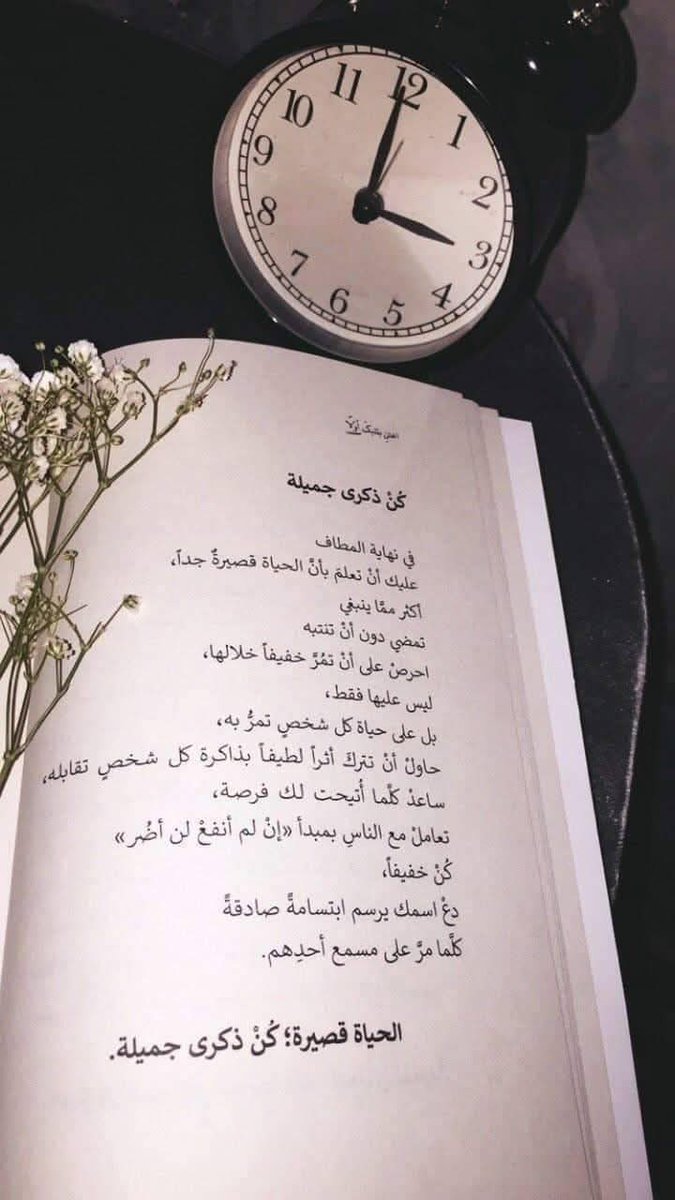 12
1
2
3
4
5
6
7
8
9
10
11
اعتنِ بقلبك أولاً
كُنْ ذكرى جميلة
في نهاية المطاف
عليك أنْ تعلمَ بأنَّ الحياة قصيرةٌ جداً،
أكثر ممَّا ينبغي
تمضي دون أنْ تنتبه
احرصْ على أنْ تمُرَّ خفيفاً خلالها،
ليس عليها فقط،
بل على حياة كل شخصٍ تمرُّ به،
حاولْ أنْ تتركَ أثراً لطيفاً بذاكرة كل شخصٍ تقابله،
ساعدْ كلَّما أُتيحت لك فرصة،
تعاملْ مع الناسِ بمبدأ «إنْ لم أنفعْ لن أضُر»
كُنْ خفيفاً،
دعْ اسمك يرسم ابتسامةً صادقةً
كلَّما مرَّ على مسمع أحدِهم.
الحياة قصيرة؛ كُنْ ذكرى جميلة.